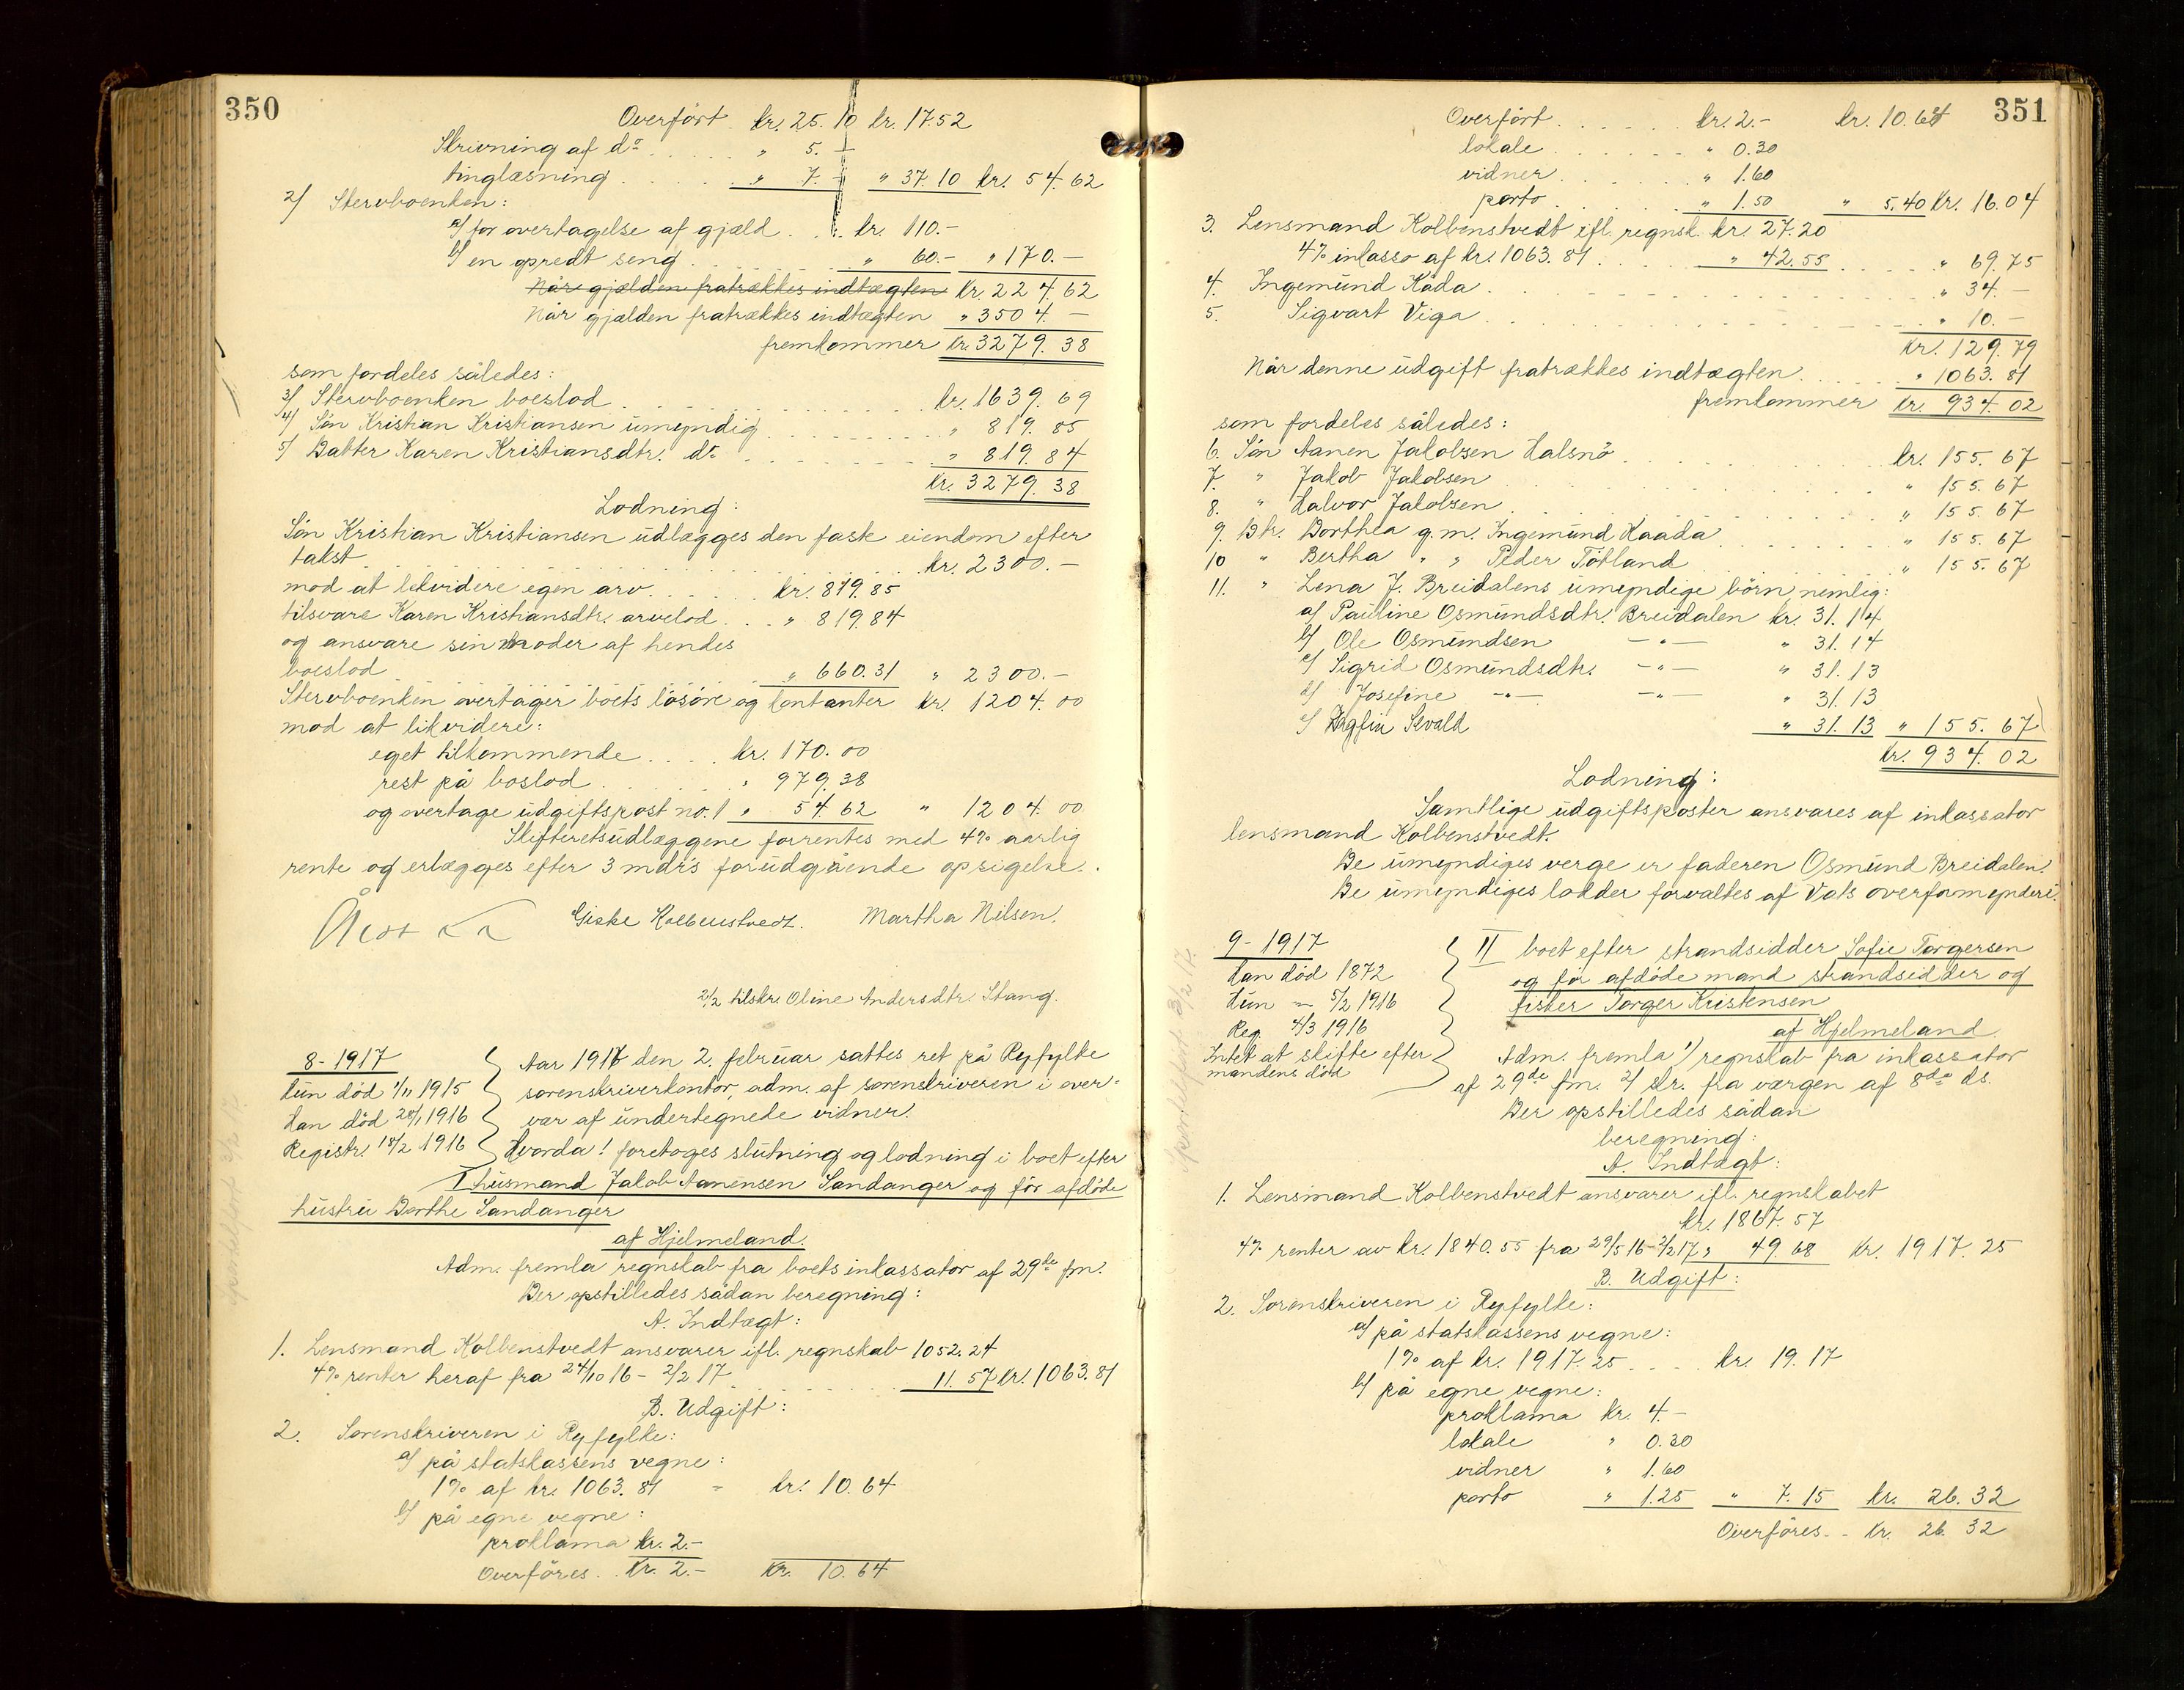 350
Overført . kr. 25. 10 kr. 17.52
Skrivning af do . . . . . " 5. –
tinglæsning . . . . . " 7. – " 37. 10 kr. 54. 62
2/ Stervboenken:
a/ for overtagelse af gjæld . . . kr. 110.–
b/ en opredt seng . . . . . " 60.– " 170. –
Når gjælden fratrækkes indtægten Kr. 224. 62
Når gjælden fratrækkes indtægten " 3504. –
fremkommer Kr. 3279. 38
som fordeles således:
3/ Stervboenken boeslod . . . . . kr. 1639. 69
4/ Søn Kristian Kristiansen umyndig . . . . . " 819. 85
5/ Datter Karen Kristiansdtr. do . . . . . " 819. 84
Kr. 3279. 38
Lodning:
Søn Kristian Kristiansen udlægges den faste eiendom efter
takst . . . . . kr. 2300. –
mod at likvidere egen arv . . . . . kr. 819. 85
tilsvare Karen Kristiansdtr. arvelod . . . " 819. 84
og ansvare sin moder af hendes
boeslod . . . . . " 660. 31 " 2300. –
Stervboenken overtager boets løsøre og kontanter kr. 1204. 00
mod at likvidere:
eget tilkommende . . . . kr. 170. 00
rest på boslod . . . . . " 979. 38
og overtage udgiftspost no. 1 " 54. 62 " 1204. 00
Skifteretsudlæggene forrentes med 4% aarlig
rente og erlægges efter 3 mdr's forudgående opsigelse.
Giske Kolbenstvedt. Martha Nilsen.
2/2 tilskr. Oline Andersdtr. Stang.
8 - 1917
Hun død 1/11 1915
Han død 20/1 1916
Registr. 18/2 1916
Aar 1917 den 2. februar sattes ret på Ryfylke
sorenskriverkontor, adm. af sorenskriveren i over-
vær af undertegnede vidner.
Hvorda! foretoges slutning og lodning i boet efter
I husmand Jakob Aanensen Sandanger og før afdøde
hustru Dorthe Sandanger
af Hjelmeland.
Adm. fremla regnskab fra boets inkassator af 29de fm.
Der opstilledes sådan beregning:
A. Indtægt:
1. Lensmand Kolbenstvedt ansvarer ifl. regnskab 1052. 24
4% renter heraf fra 24/10 16 - 2/2 17 . . . . . 11. 57 kr. 1063. 81
B. Udgift:
2. Sorenskriveren i Ryfylke:
a/ på statskassens vegne:
1% af kr. 1063. 81 - kr. 10. 64
b/ på egne vegne:
proklama kr. 2.–
Overføres . . Kr. 2.– Kr. 10. 64
351
Overført . . . . . kr. 2.– kr. 10. 64
lokale . . . . . " 0.30
vidner . . . . . " 1.60
porto . . . . . " 1.50 " 5.40 Kr. 16. 04
3. Lensmand Kolbenstvedt ifl. regnsk. kr. 27. 20
4% inkasso af kr. 1063. 81 . . . . " 42. 55 . . . . . " 69. 75
4. Ingemund Kåda . . . . . " 34. –
5. Sigvart Viga . . . . . " 10. –
Kr. 129. 79
Når denne udgift fratrækkes indtægten . . . . . " 1063. 81
fremkommer Kr. 934. 02
som fordeles således:
6. Søn Aanen Jakobsen Halsnø . . . . . kr. 155. 67
7. " Jakob Jakobsen . . . . . " 155. 67
8. " Halvor Jakobsen . . . . . " 155. 67
9. Dtr. Dorthea g. m. Ingemund Kaada . . . . . " 155. 67
10 " Bertha " " Peder Tøtland . . . . . " 155. 67
11. " Lena J. Breidalens umyndige børn, nemlig:
a/ Pauline Osmundsdtr. Breidalen kr. 31. 14
b/ Ole Osmundsen – " – " 31. 14
c/ Sigrid Osmundsdtr. – " – " 31. 13
d/ Josefine – " – – " – " 31. 13
e/ Sevald " 31. 13 " 155. 67
Kr. 934. 02
Lodning:
Samtlige udgiftsposter ansvares af inkassator
lensmand Kolbenstvedt.
De umyndiges verge er faderen Osmund Breidalen.
De umyndiges lodder forvaltes af Vats overformynderi.
9 - 1917
Han død 1872
Hun – 5/2 1916
Reg. 4/3 1916
Intet at skifte efter
mandens død
II boet efter strandsidder Sofie Torgersen
og før afdøde mand strandsidder og
fisker Torger Kristensen
af Hjelmeland
Adm. fremla 1/ regnskab fra inkassator
af 29de fm. 2/ skr. fra værgen af 8de ds.
Der opstilledes sådan
beregning:
A. Indtægt:
1. Lensmand Kolbenstvedt ansvarer ifl. regnskabet
kr. 1867. 57
4% renter av kr. 1840. 55 fra 29/5 16 - 2/2 17 " 49. 68 Kr. 1917. 25
B. Udgift:
2. Sorenskriveren i Ryfylke:
a/ på statskassens vegne:
1% af kr. 1917. 25 . . . . kr. 19. 17
b/ på egne vegne:
proklama Kr. 4.–
lokale " 0.30
vidner " 1.60
porto " 1.25 " 7. 15 kr. 26. 32
Overføres . . Kr. 26. 32